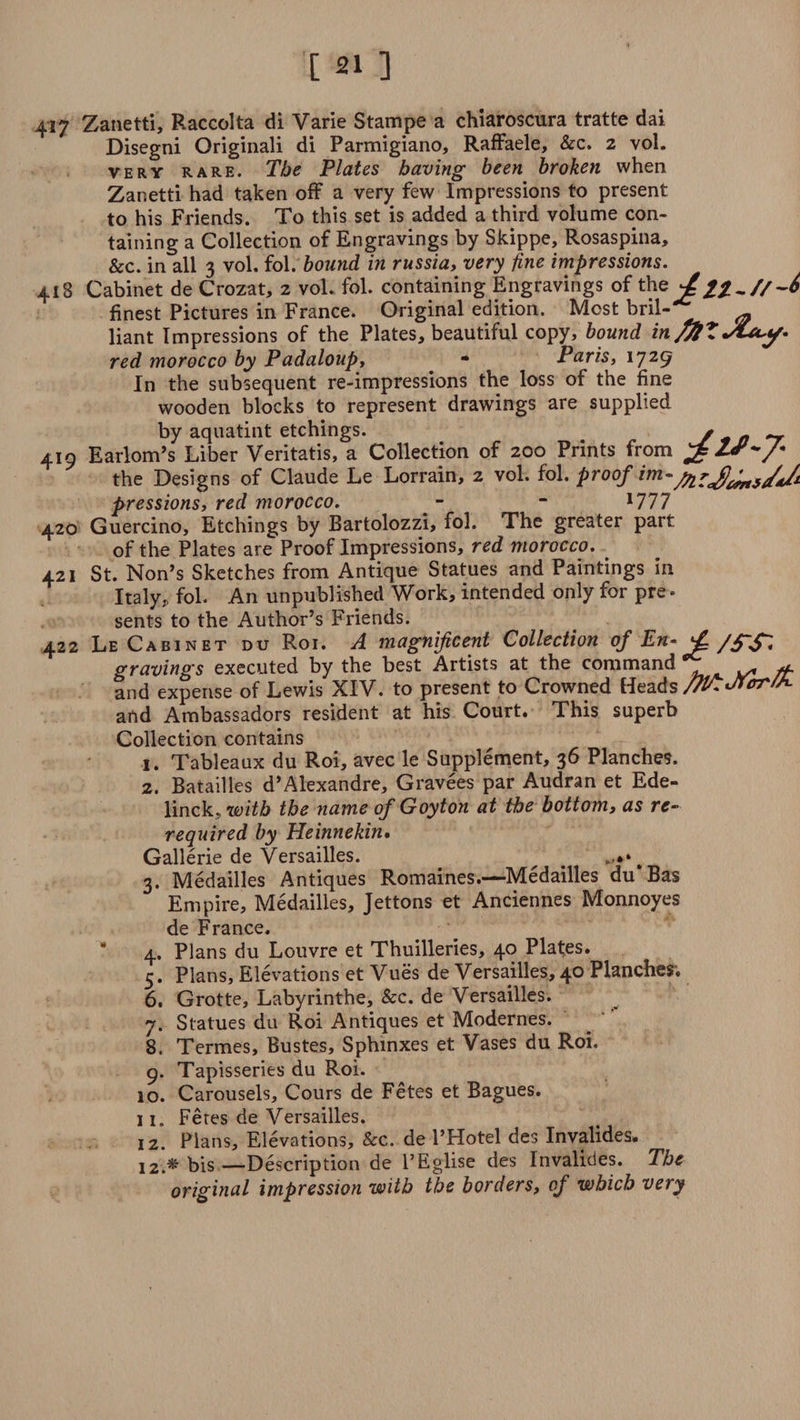 [ 21 ]
417 Zanetti, Raccolta di Varie Stampe a chiaroscura tratte dai
Disegni Originali di Parmigiano, Raffaele, &c. 2 vol.
VERY RARE. The Plates having been broken when
Zanetti had taken off a very few Impressions to present
to his Friends. To this set is added a third volume con-
taining a Collection of Engravings by Skippe, Rosaspina,
&c. in all 3 vol. fol. bound in russia, very fine impressions.
418 Cabinet de Crozat, 2 vol. fol. containing Engravings of the £ 22-11-6
finest Pictures in France. Original edition. Most bril-
liant Impressions of the Plates, beautiful copy, bound in Mr Hay.
red morocco by Padaloup, - Paris, 1729
In the subsequent re-impressions the loss of the fine
wooden blocks to represent drawings are supplied
by aquatint etchings.
419 Earlom's Liber Veritatis, a Collection of 200 Prints from £ 28-7-
the Designs of Claude Le Lorrain, 2 vol. fol. proof im- Mr
pressions, red morocco. - - 1777
420 Guercino, Etchings by Bartolozzi, fol. The greater part
of the Plates are Proof Impressions, red morocco.
421 St. Non's Sketches from Antique Statues and Paintings in
Italy, fol. An unpublished Work, intended only for pre-
sents to the Author's Friends.
422 LE CABINET DU ROI. A magnificent Collection of En- £ 155.
gravings executed by the best Artists at the command
and expense of Lewis XIV. to present to Crowned Heads Mr North
and Ambassadors resident at his Court. This superb
Collection contains
1. Tableaux du Roi, avec le Supplément, 36 Planches.
2. Batailles d'Alexandre, Gravées par Audran et Ede-
linck, with the name of Goyton at the bottom, as re-
required by Heinnekin.
Gallérie de Versailles.
3. Médailles Antiques Romaines.—Médailles du Bas
Empire, Médailles, Jettons et Anciennes Monnoyes
de France.
4. Plans du Louvre et Thuilleries, 40 Plates.
5. Plans, Elévations et Vués de Versailles, 40 Planches.
6. Grotte, Labyrinthe, &c. de Versailles.
7. Statues du Roi Antiques et Modernes.
8. Termes, Bustes, Sphinxes et Vases du Roi.
9. Tapisseries du Roi.
10. Carousels, Cours de Fêtes et Bagues.
11. Fêtes de Versailles.
12. Plans, Elévations, &c. de l'Hotel des Invalides.
12.* bis.—Déscription de l'Eglise des Invalides. The
original impression with the borders, of which very